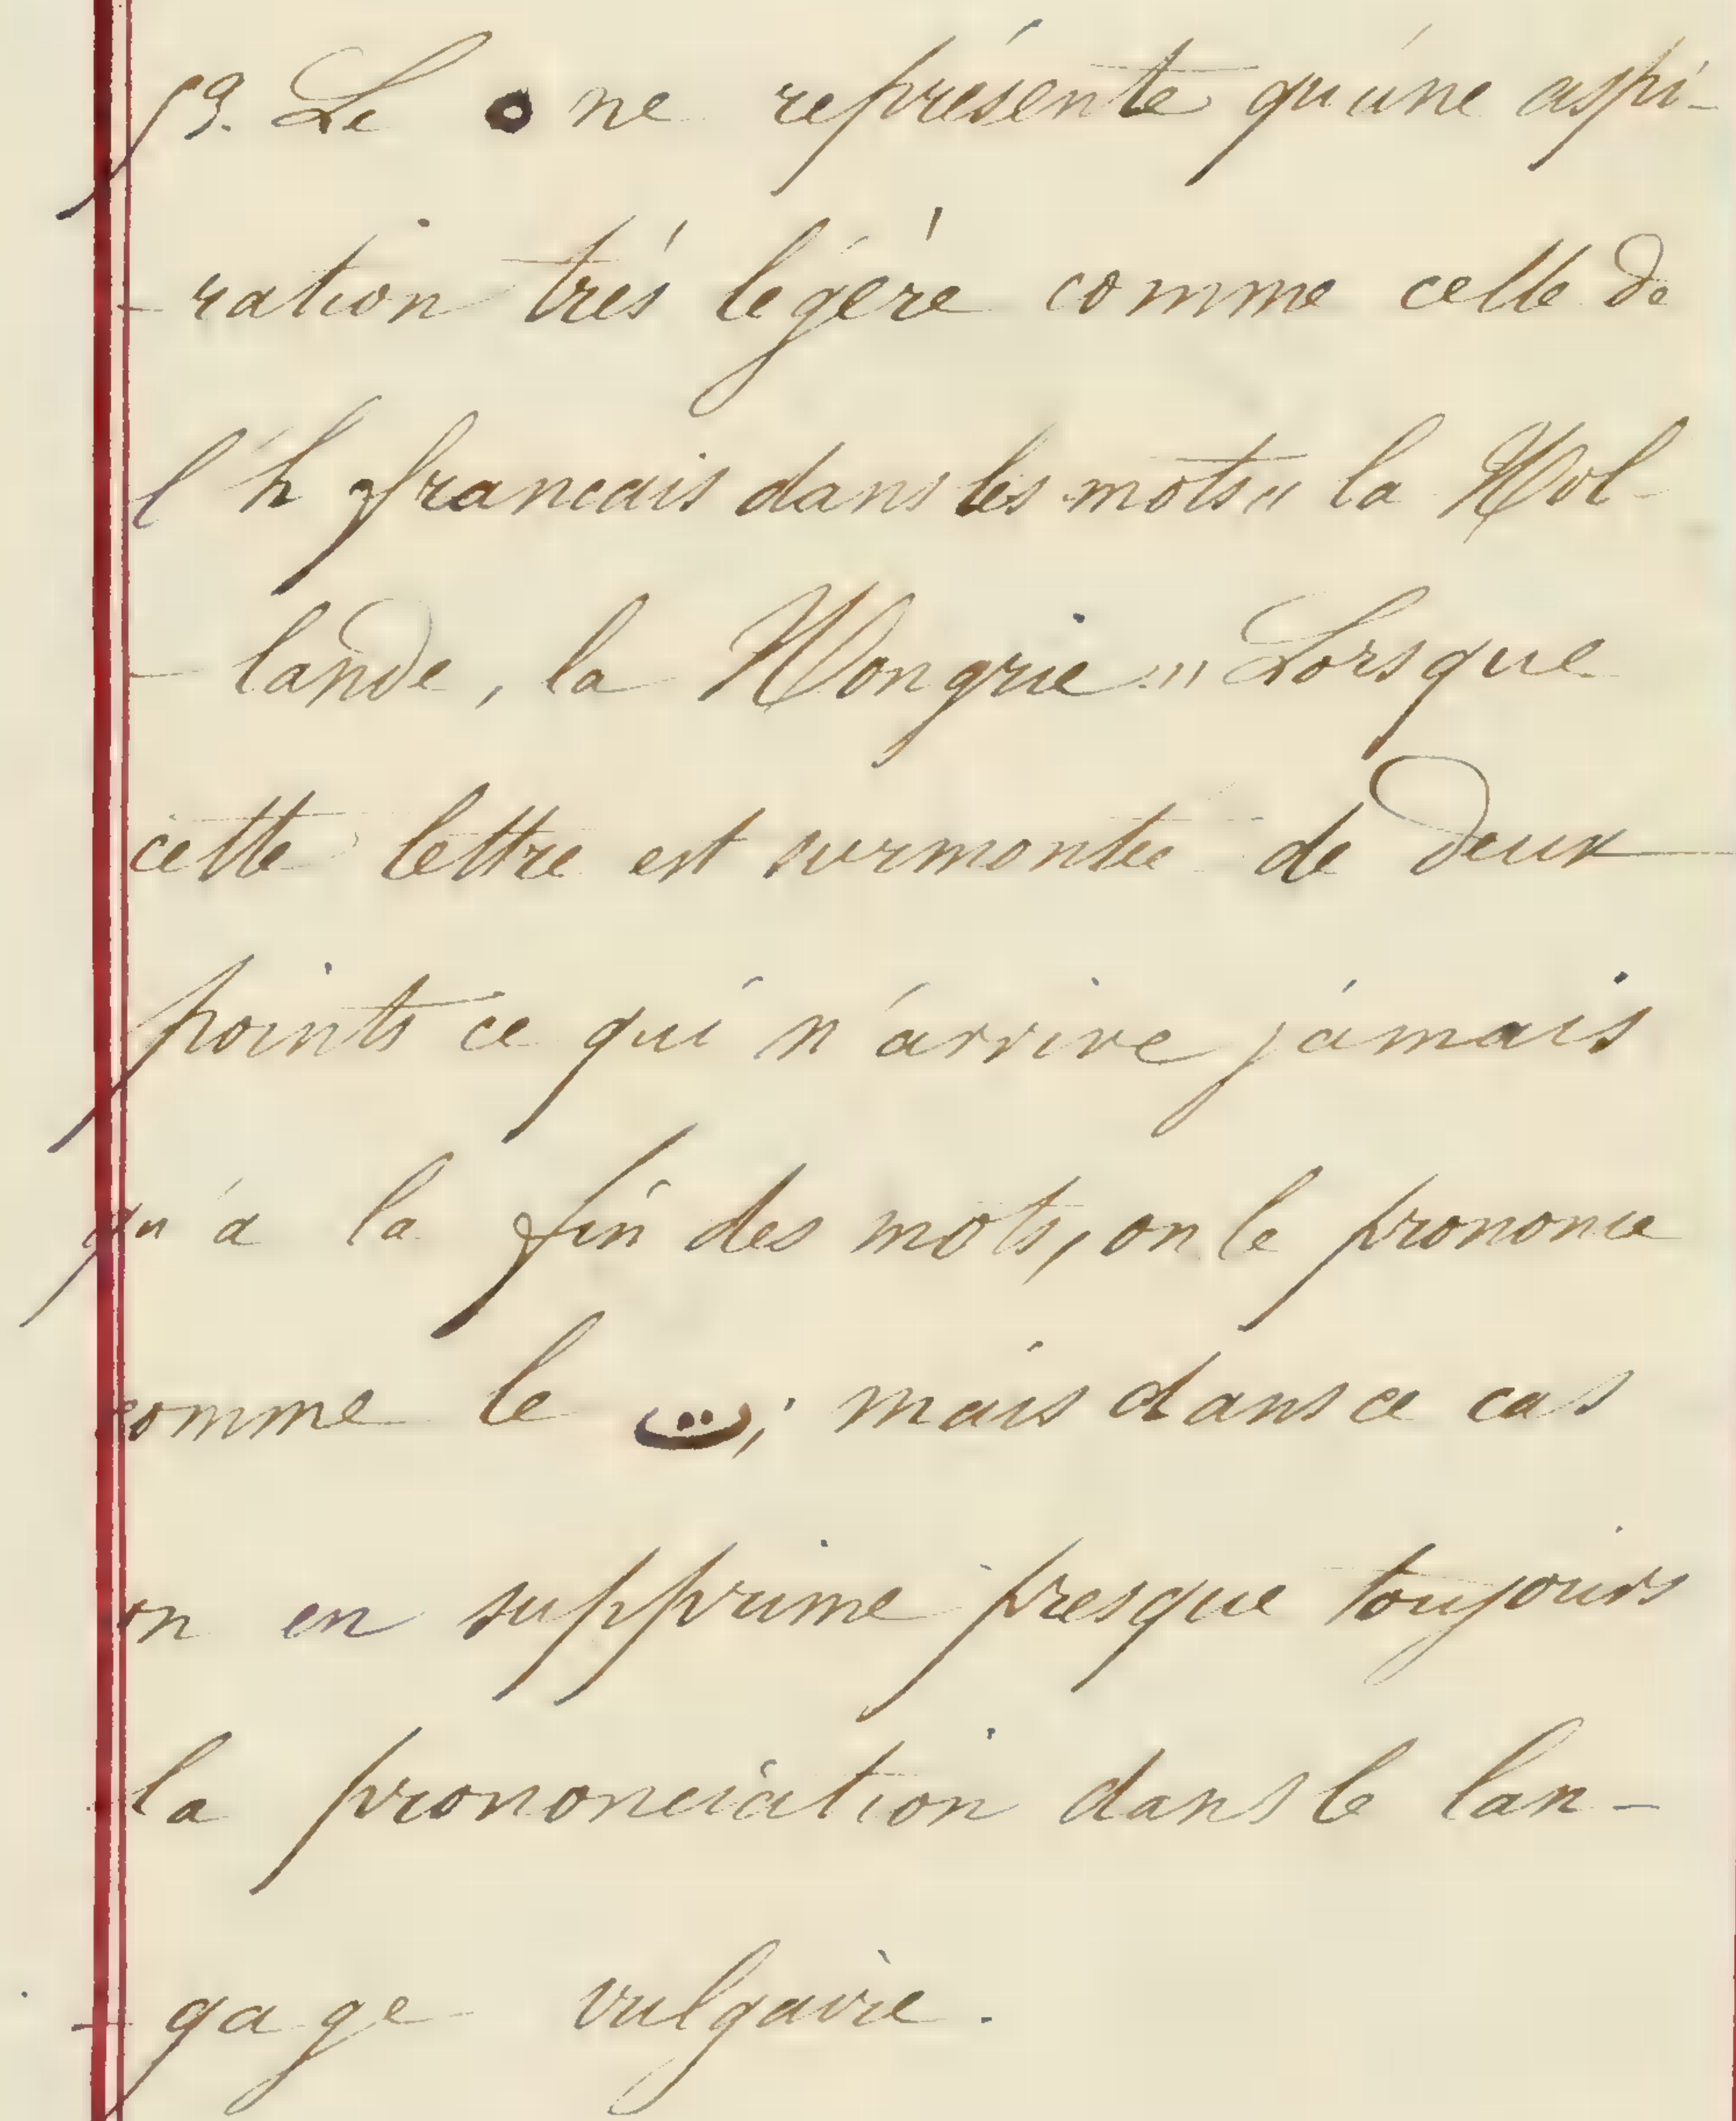 59. Le ه ne représente qu'une aspi-
- ration trés légère comme celle de
l'h francais dans les mots " la Hol-
- lande, la Hongrie " Lorsque
cette lettre est surmontée de deux
points ce qui n'arrive jamais
qu'a la fin des mots, on le prononce
comme le ت; mais dans ce cas
on en supprime presque toujours
la prononciation dans le lan-
- gage vulgaire.